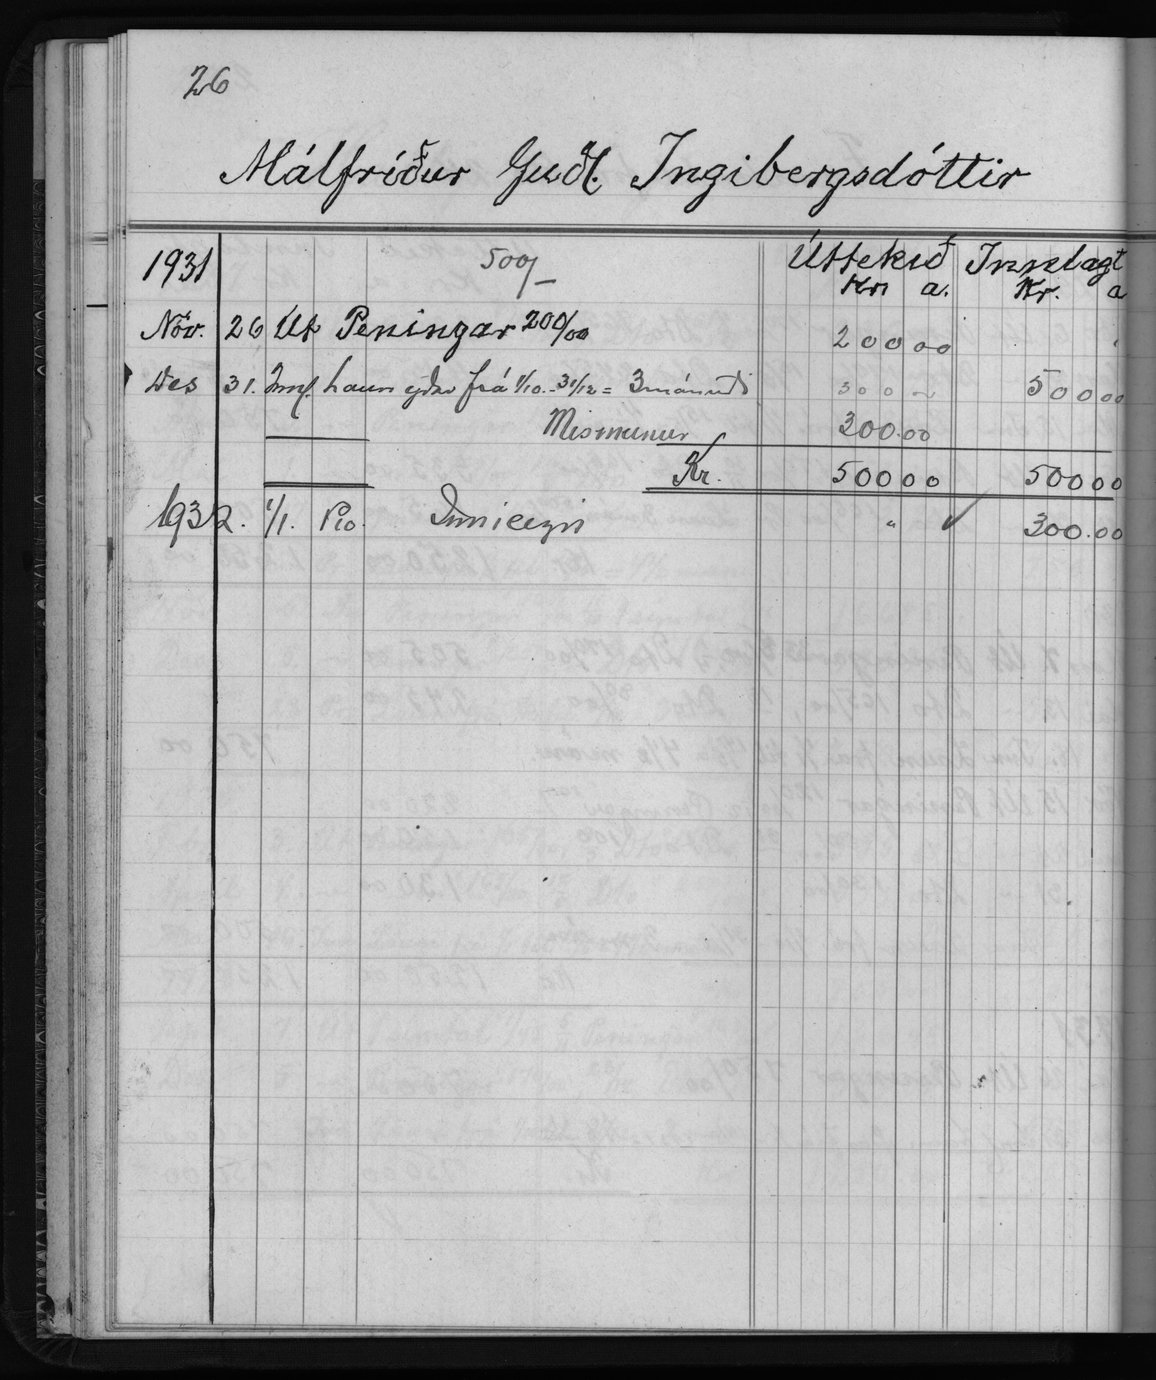 26
Málfríður Guðl. Ingibergsdóttir
1931 500/- Úttekið Innlagt
Kr a. Kr. a
Nóv. 26 Út Peningar 200/00 200 00
Des 31. Innf. laun yðar frá 1/10 - 31/12 = 3 mánuði 500 00
Mismunur 300.00
Kr. 500 00 500 00
1932. 1/1. Pr. Inneign " 300.00